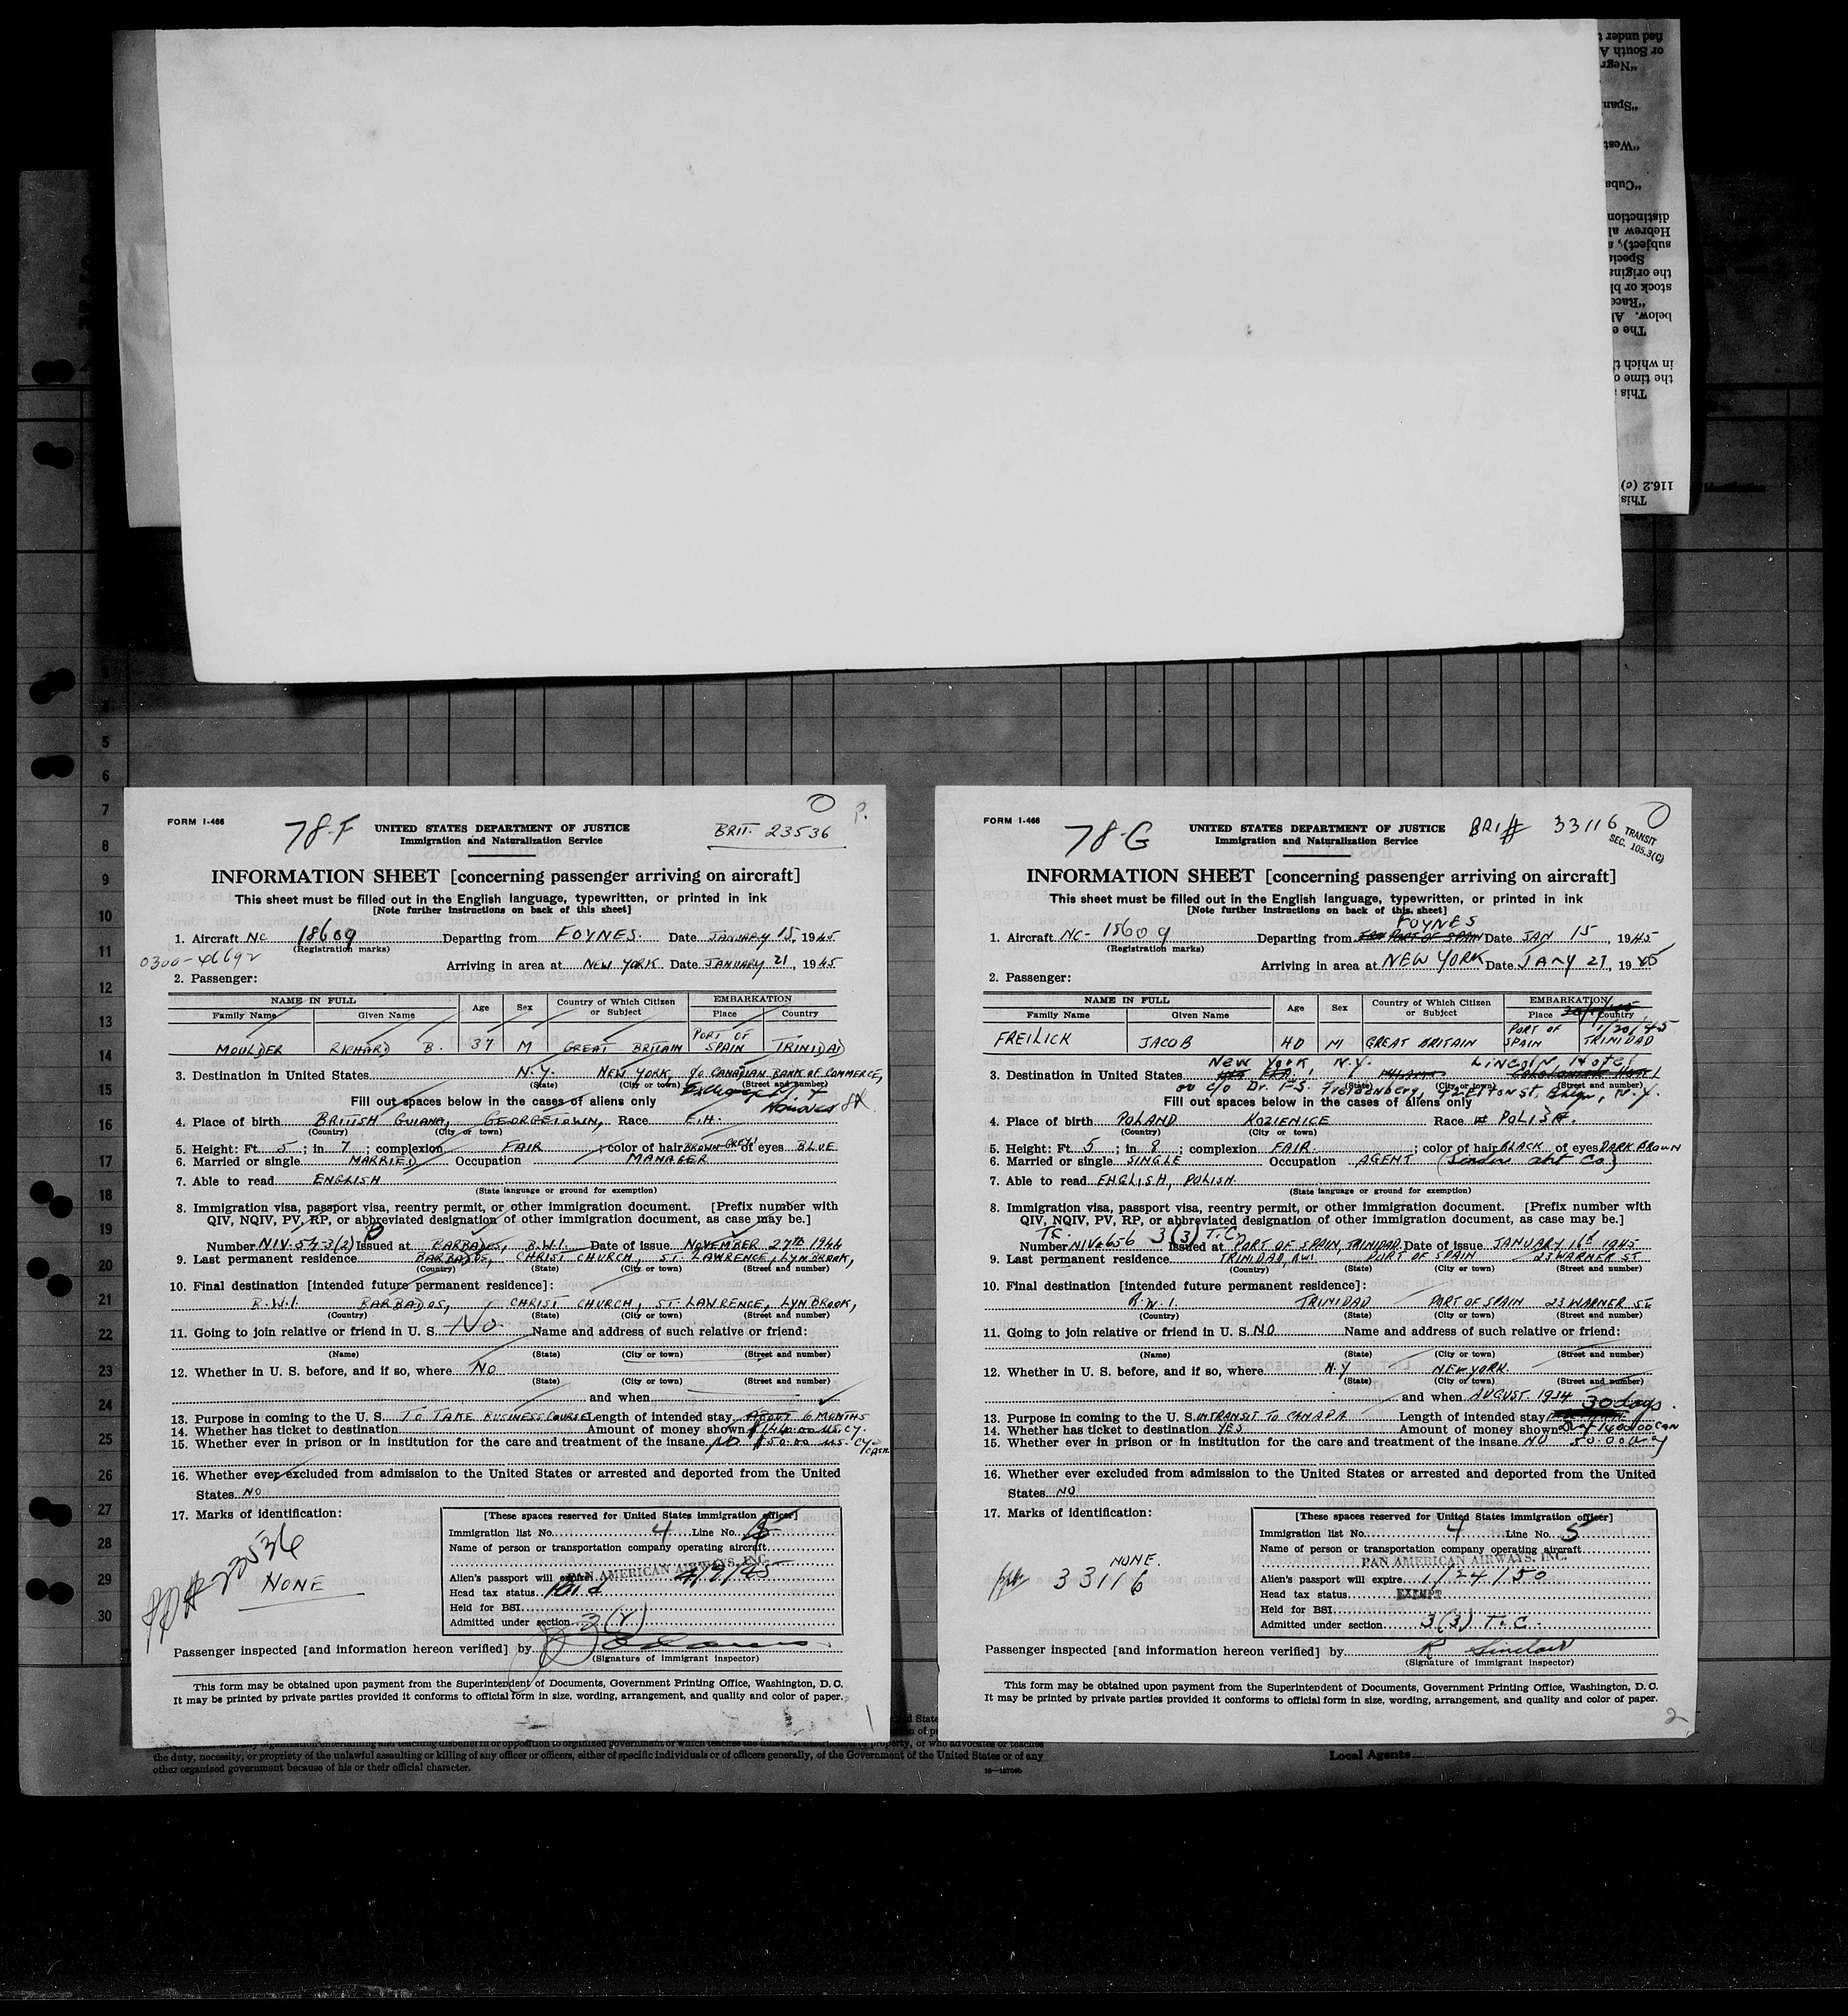 FORM I-466
78-F
UNITED STATES DEPARTMENT OF JUSTICE
Immigration and Naturalization Service
BRIT. 23536
INFORMATION SHEET [concerning passenger arriving on aircraft]
This sheet must be filled out in the English language, typewritten, or printed in ink
[Note further instructions on back of this sheet]
1. Aircraft NC 18609 Departing from FOYNES. Date JANUARY 15, 1945
(Registration marks)
0300-46692
Arriving in area at NEW YORK Date JANUARY 21, 1945
2. Passenger:
NAME IN FULL Age Sex Country of Which Citizen or Subject EMBARKATION
Family Name Given Name Place Country
MOULDER RICHARD B. 37 M GREAT BRITAIN PORT OF SPAIN TRINIDAD
3. Destination in United States N.Y. NEW YORK, c/o CANADIAN BANK OF COMMERCE,
(State) (City or town) (Street and number)
Fill out spaces below in the cases of aliens only
4. Place of birth BRITISH GUIANA, GEORGETOWN, Race
(Country) (City or town)
5. Height: Ft. 5; in 7; complexion FAIR; color of hair BROWN-GREY of eyes BLUE
6. Married or single MARRIED Occupation MANAGER
7. Able to read ENGLISH
(State language or ground for exemption)
8. Immigration visa, passport visa, reentry permit, or other immigration document. [Prefix number with
QIV, NQIV, PV, RP, or abbreviated designation of other immigration document, as case may be.]
Number NIV-543(2) Issued at BARBADOS, B.W.I. Date of issue NOVEMBER 27th 1944
9. Last permanent residence BARBADOS, CHRIST CHURCH, ST. LAWRENCE, LYNBROOK,
(Country) (State) (City or town) (Street and number)
10. Final destination [intended future permanent residence]:
B.W.I. BARBADOS, CHRIST CHURCH, ST. LAWRENCE, LYNBROOK,
(Country) (State) (City or town) (Street and number)
11. Going to join relative or friend in U. S. No Name and address of such relative or friend:
(Name) (State) (City or town) (Street and number)
12. Whether in U. S. before, and if so, where NO
(State) (City or town) (Street and number)
and when
13. Purpose in coming to the U. S. TO TAKE BUSINESS COURSE Length of intended stay ABOUT 6 MONTHS
14. Whether has ticket to destination Amount of money shown $144.00 US. CY.
15. Whether ever in prison or in institution for the care and treatment of the insane NO $50.00 US. CY. CASH.
16. Whether ever excluded from admission to the United States or arrested and deported from the United
States NO
17. Marks of identification:
NONE
[These spaces reserved for United States immigration officer]
Immigration list No. 4 Line No.
Name of person or transportation company operating aircraft
PAN AMERICAN AIRWAYS, INC.
Alien's passport will expire
Head tax status Paid
Held for BSI
Admitted under section
Passenger inspected [and information hereon verified] by
(Signature of immigrant inspector)
This form may be obtained upon payment from the Superintendent of Documents, Government Printing Office, Washington, D. C.
It may be printed by private parties provided it conforms to official form in size, wording, arrangement, and quality and color of paper.
1
FORM I-466
78-G
UNITED STATES DEPARTMENT OF JUSTICE
Immigration and Naturalization Service
33116
TRANSIT
SEC. 105.3(C)
INFORMATION SHEET [concerning passenger arriving on aircraft]
This sheet must be filled out in the English language, typewritten, or printed in ink
[Note further instructions on back of this sheet]
FOYNES
1. Aircraft NC-18609 Departing from PORT OF SPAIN Date JAN 15, 1945
(Registration marks)
Arriving in area at NEW YORK Date JANY 21, 1945
2. Passenger:
NAME IN FULL Age Sex Country of Which Citizen or Subject EMBARKATION
Family Name Given Name Place Country
1/20/45
FREILICK JACOB 40 M GREAT BRITAIN PORT OF SPAIN TRINIDAD
New York, N.Y. Lincoln Hotel
3. Destination in United States
(State) (City or town) (Street and number)
or c/o Dr.
Fill out spaces below in the cases of aliens only
4. Place of birth POLAND KOZIENICE Race POLISH.
(Country) (City or town)
5. Height: Ft. 5; in 8; complexion FAIR; color of hair BLACK of eyes DARK BROWN
6. Married or single SINGLE Occupation AGENT
7. Able to read ENGLISH, POLISH
(State language or ground for exemption)
8. Immigration visa, passport visa, reentry permit, or other immigration document. [Prefix number with
QIV, NQIV, PV, RP, or abbreviated designation of other immigration document, as case may be.]
3(3) T.C.
Number NIV#656 Issued at PORT OF SPAIN, TRINIDAD Date of issue JANUARY 16th 1945
9. Last permanent residence TRINIDAD, BWI PORT OF SPAIN 23 WARNER ST
(Country) (State) (City or town) (Street and number)
10. Final destination [intended future permanent residence]:
B.W.I. TRINIDAD PORT OF SPAIN 23 WARNER ST
(Country) (State) (City or town) (Street and number)
11. Going to join relative or friend in U. S. NO Name and address of such relative or friend:
(Name) (State) (City or town) (Street and number)
12. Whether in U. S. before, and if so, where N.Y NEW YORK
(State) (City or town) (Street and number)
and when AUGUST 1934
30 days.
13. Purpose in coming to the U. S. INTRANSIT TO CANADA Length of intended stay
14. Whether has ticket to destination YES Amount of money shown
15. Whether ever in prison or in institution for the care and treatment of the insane NO
16. Whether ever excluded from admission to the United States or arrested and deported from the United
States NO
17. Marks of identification:
NONE.
33116
[These spaces reserved for United States immigration officer]
Immigration list No. 4 Line No. 5
Name of person or transportation company operating aircraft
PAN AMERICAN AIRWAYS, INC.
Alien's passport will expire 1/24/50
Head tax status EXEMPT
Held for BSI
Admitted under section 3(3) T.C.
Passenger inspected [and information hereon verified] by R Sinclair
(Signature of immigrant inspector)
This form may be obtained upon payment from the Superintendent of Documents, Government Printing Office, Washington, D. C.
It may be printed by private parties provided it conforms to official form in size, wording, arrangement, and quality and color of paper.
2
the duty, necessity, or propriety of the unlawful assaulting or killing of any officer or officers, either of specific individuals or of officers generally, of the Government of the United States or of any
other organized government because of his or their official character.
Local Agents